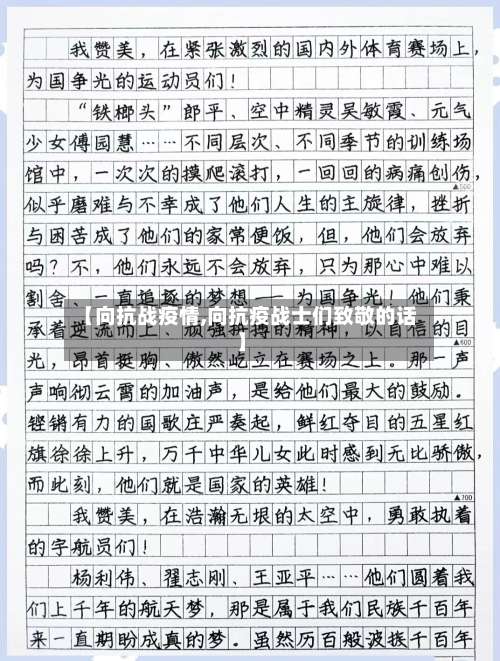 我赞美，在紧张激烈的国内外体育赛场上，
为国争光的运动员们！
“铁榔头”郎平、空中精灵吴敏霞、元气
少女傅园慧……不同层次、不同季节的训练场
馆中，一次次的摸爬滚打，一回回的病痛创伤，
▲500
似乎磨难与不幸成了他们人生的主旋律，挫折
与困苦成了他们的家常便饭，但，他们会放弃
吗？不，他们永远不会放弃，只为那心中难以
割舍、一直追逐的梦想——为国争光！他们秉
【向抗战疫情,向抗疫战士们致敬的话
】
承着逆流而上、顽强拼搏的精神，以自信的目
▲600
光，昂首挺胸、傲然屹立在赛场之上。那一声
声响彻云霄的加油声，是给他们最大的鼓励。
铿锵有力的国歌庄严奏起，鲜红夺目的五星红
旗徐徐上升，万千中华儿女此时感到无比骄傲，
而此刻，他们就是国家的英雄！
▲700
我赞美，在浩瀚无垠的太空中，勇敢执着
的宇航员们！
杨利伟、翟志刚、王亚平……他们圆着我
们上千年的航天梦，那是属于我们民族千百年
来一直期盼成真的梦。虽然历百般波折千百年